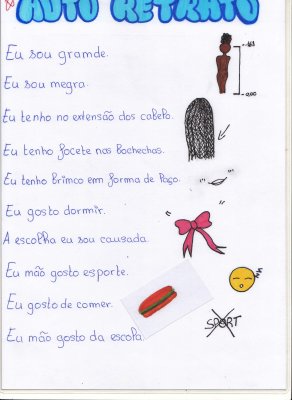 AUTO RETRATO
Eu sou grande.
Eu sou negra.
Eu tenho no extensão dos cabelo.
Eu tenho focete nas bochechas.
Eu tenho brinco em forma de laço.
Eu gosto dormir.
A escolha eu sou causada.
Eu não gosto esporte.
Eu gosto de comer.
Eu não gosto da escola.
SPORT